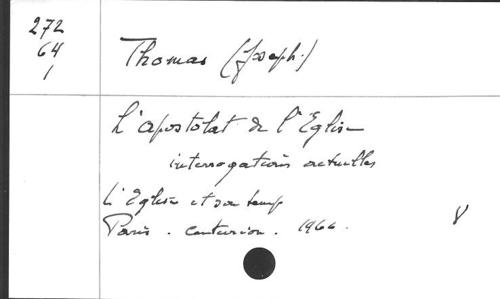 272
64
1
Thomas (Joseph.)
L'apostolat de l'Eglise
interrogations actuelles
L'Eglise et son temps
Paris. Centurion. 1966.
V